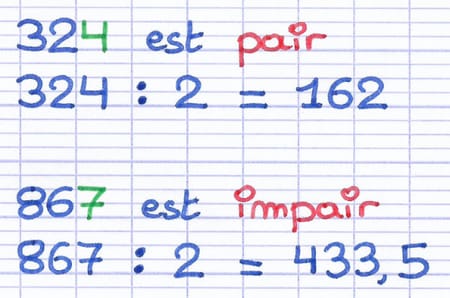 324 est pair
324 : 2 = 162
867 est impair
867 : 2 = 433,5